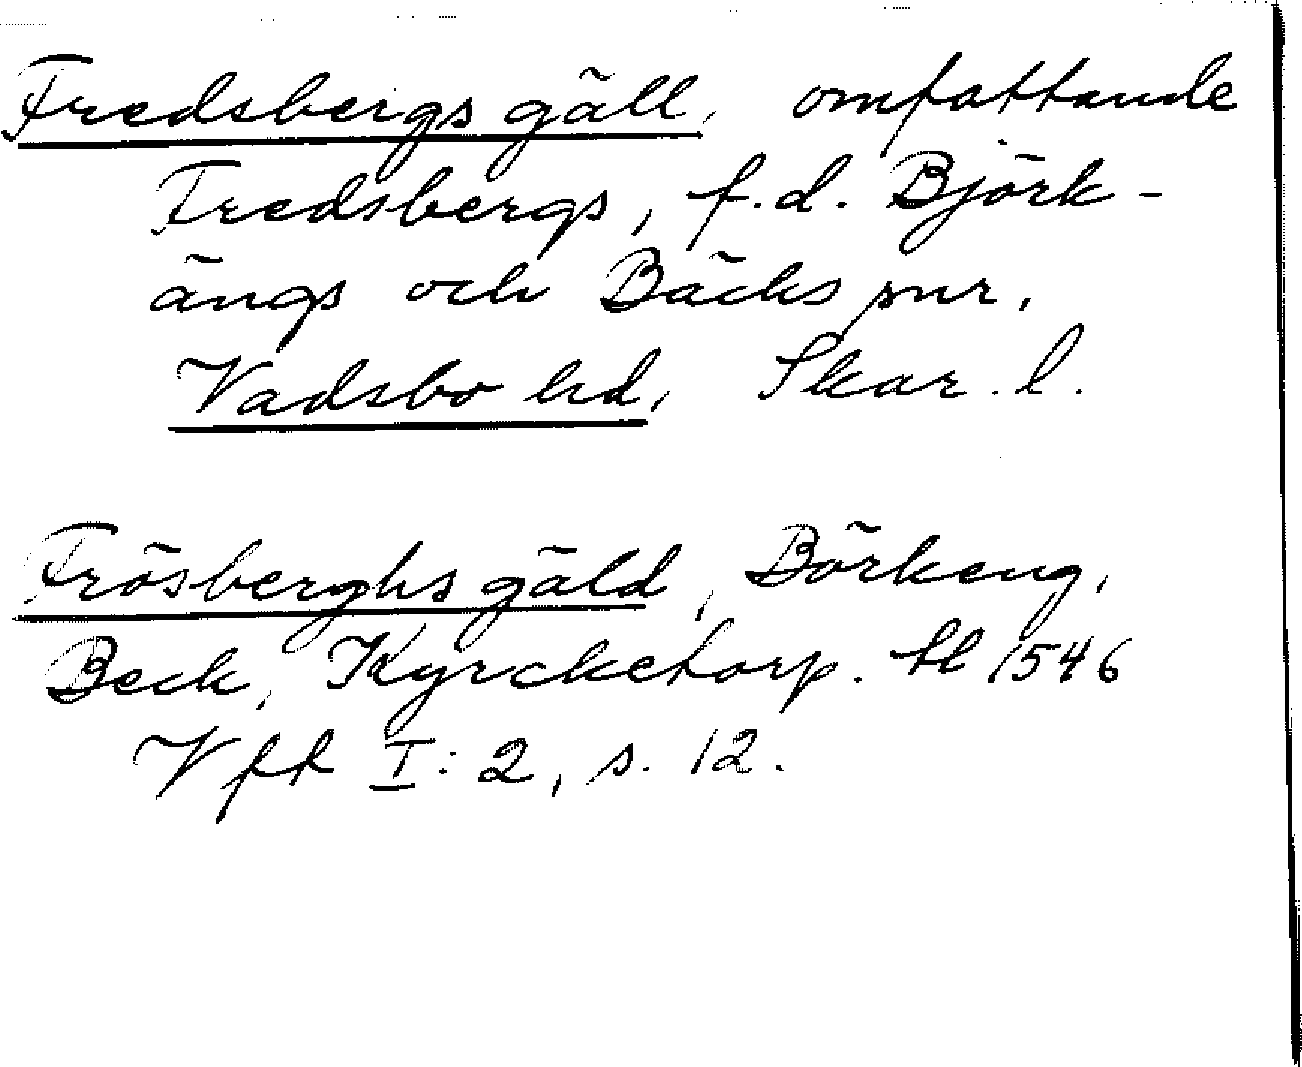 Fredsbergs gäll, omfattande
Fredsbergs, f.d. Björk-
ängs och Bäcks snr,
Vadsbo hd, Skar. l.
Frösberghs gäld, Börkeng,
Beck, Kyrcketorp. tl 1546
Vff I: 2, s. 12.